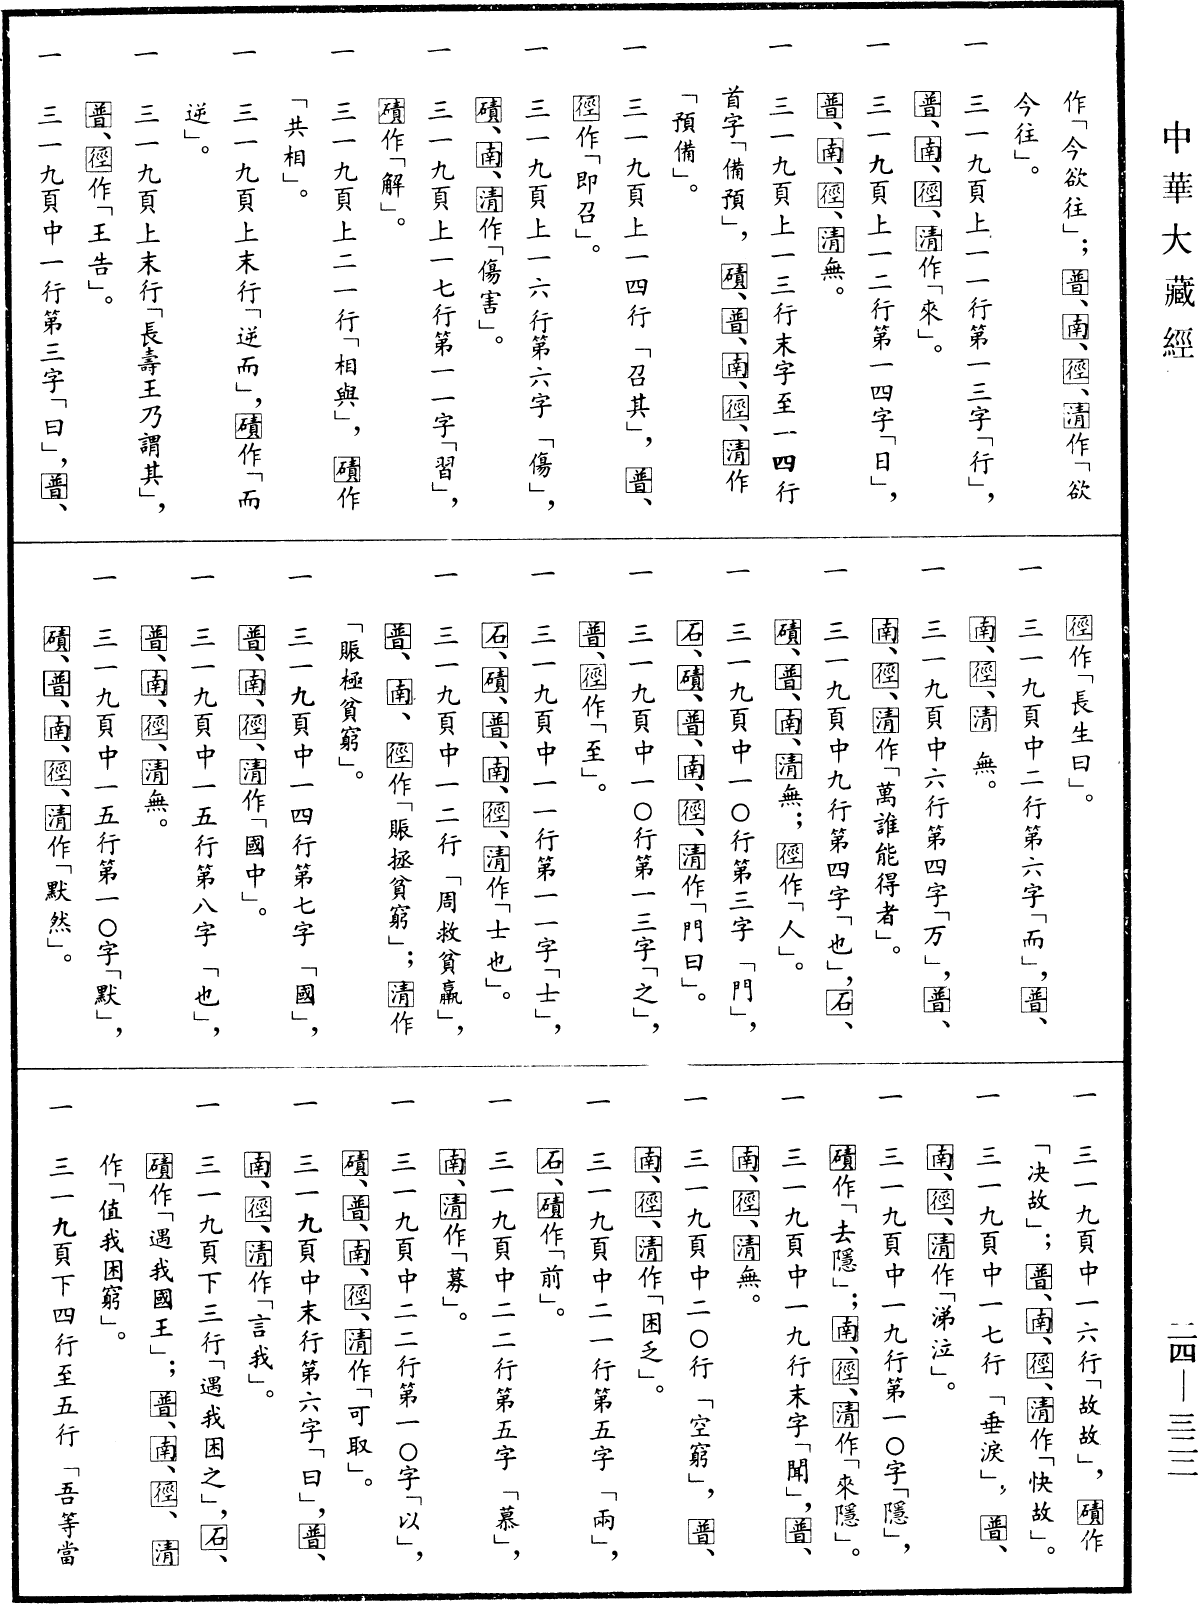 中華大藏經
作「今欲往」；普、南、徑、清作「欲
今往」。
一　三一九頁上一一行第一三字「行」，
普、南、徑、清作「來」。
一　三一九頁上一二行第一四字「日」，
普、南、徑、清無。
一　三一九頁上一三行末字至一四行
首字「備預」，磧、普、南、徑、清作
「預備」。
一　三一九頁上一四行「召其」，普、
徑作「即召」。
一　三一九頁上一六行第六字「傷」，
磧、南、清作「傷害」。
一　三一九頁上一七行第一一字「習」，
磧作「解」。
一　三一九頁上二一行「相與」，磧作
「共相」。
一　三一九頁上末行「逆而」，磧作「而
逆」。
一　三一九頁上末行「長壽王乃謂其」，
普、徑作「王告」。
一　三一九頁中一行第三字「曰」，普、
徑作「長生曰」。
一　三一九頁中二行第六字「而」，普、
南、徑、清無。
一　三一九頁中六行第四字「万」，普、
南、徑、清作「萬誰能得者」。
一　三一九頁中九行第四字「也」，石、
磧、普、南、清無；徑作「人」。
一　三一九頁中一〇行第三字「門」，
石、磧、普、南、徑、清作「門曰」。
一　三一九頁中一〇行第一三字「之」，
普、徑作「至」。
一　三一九頁中一一行第一一字「士」，
石、磧、普、南、徑、清作「士也」。
一　三一九頁中一二行「周救貧羸」，
普、南、徑作「賑拯貧窮」；清作
「賑極貧窮」。
一　三一九頁中一四行第七字「國」，
普、南、徑、清作「國中」。
一　三一九頁中一五行第八字「也」，
普、南、徑、清無。
一　三一九頁中一五行第一〇字「默」，
磧、普、南、徑、清作「默然」。
一　三一九頁中一六行「故故」，磧作
「决故」；普、南、徑、清作「快故」。
一　三一九頁中一七行「垂淚」，普、
南、徑、清作「涕泣」。
一　三一九頁中一九行第一〇字「隱」，
磧作「去隱」；南、徑、清作「來隱」。
一　三一九頁中一九行末字「聞」，普、
南、徑、清無。
一　三一九頁中二〇行「空窮」，普、
南、徑、清作「困乏」。
一　三一九頁中二一行第五字「兩」，
石、磧作「前」。
一　三一九頁中二二行第五字「慕」，
南、清作「募」。
一　三一九頁中二二行第一〇字「以」，
磧、普、南、徑、清作「可取」。
一　三一九頁中末行第六字「曰」，普、
南、徑、清作「言我」。
一　三一九頁下三行「遇我困之」，石、
磧作「遇我國王」；普、南、徑、清
作「值我困窮」。
一　三一九頁下四行至五行「吾等當
二四—三二二